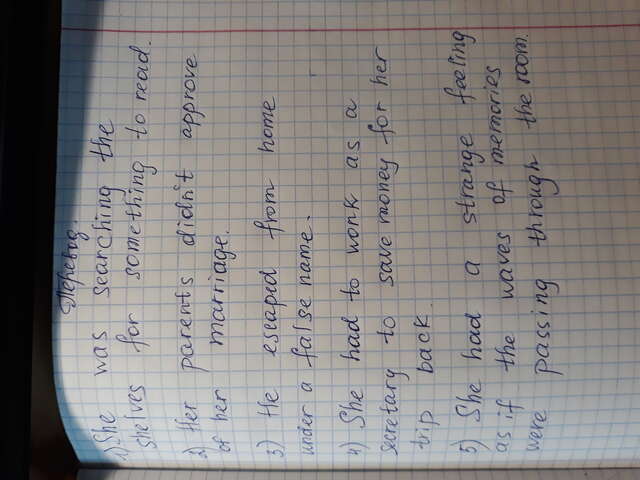 Перевод.
1) She was searching the
shelves for something to read.
2) Her parents didn't approve
of her marriage.
3) He escaped from home
under a false name.
4) She had to work as a
secretary to save money for her
trip back.
5) She had a strange feeling
as if the waves of memories
were passing through the room.